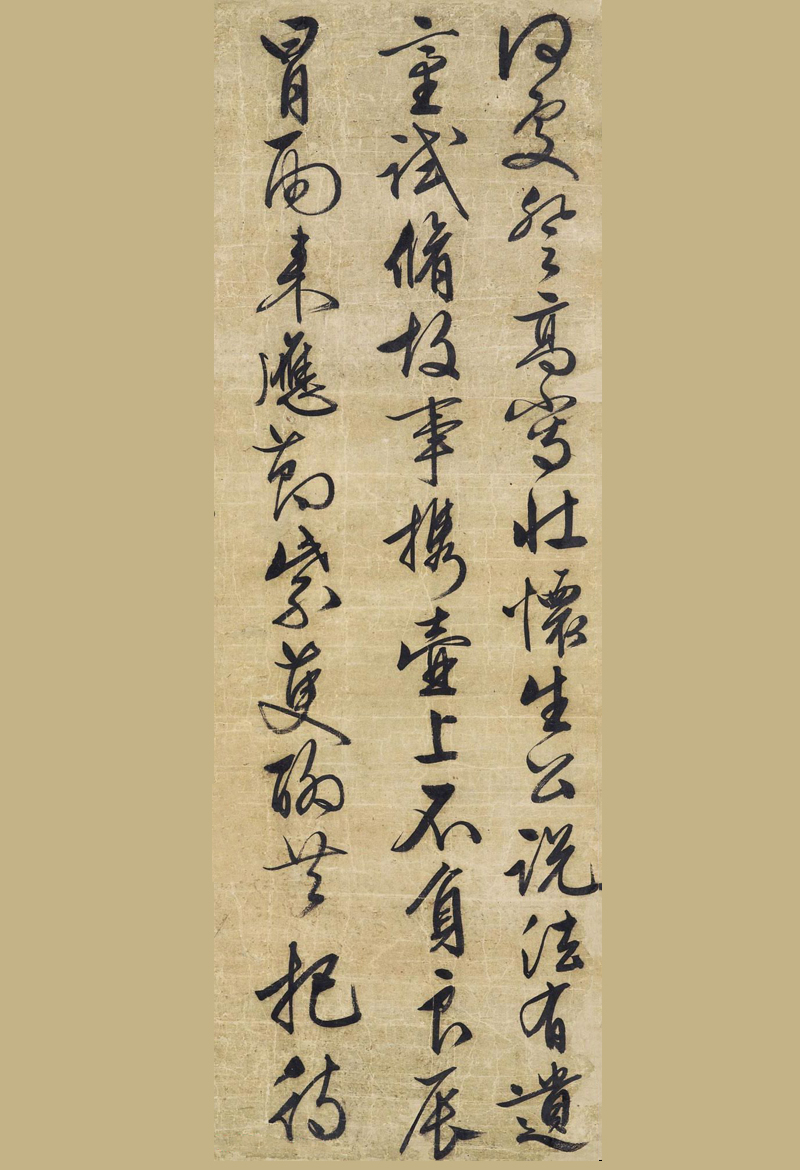 何處登高寫壯懷生公說法有遺
臺試脩故事攜壺上不負良辰
冒雨來應節紫萸聊共把待